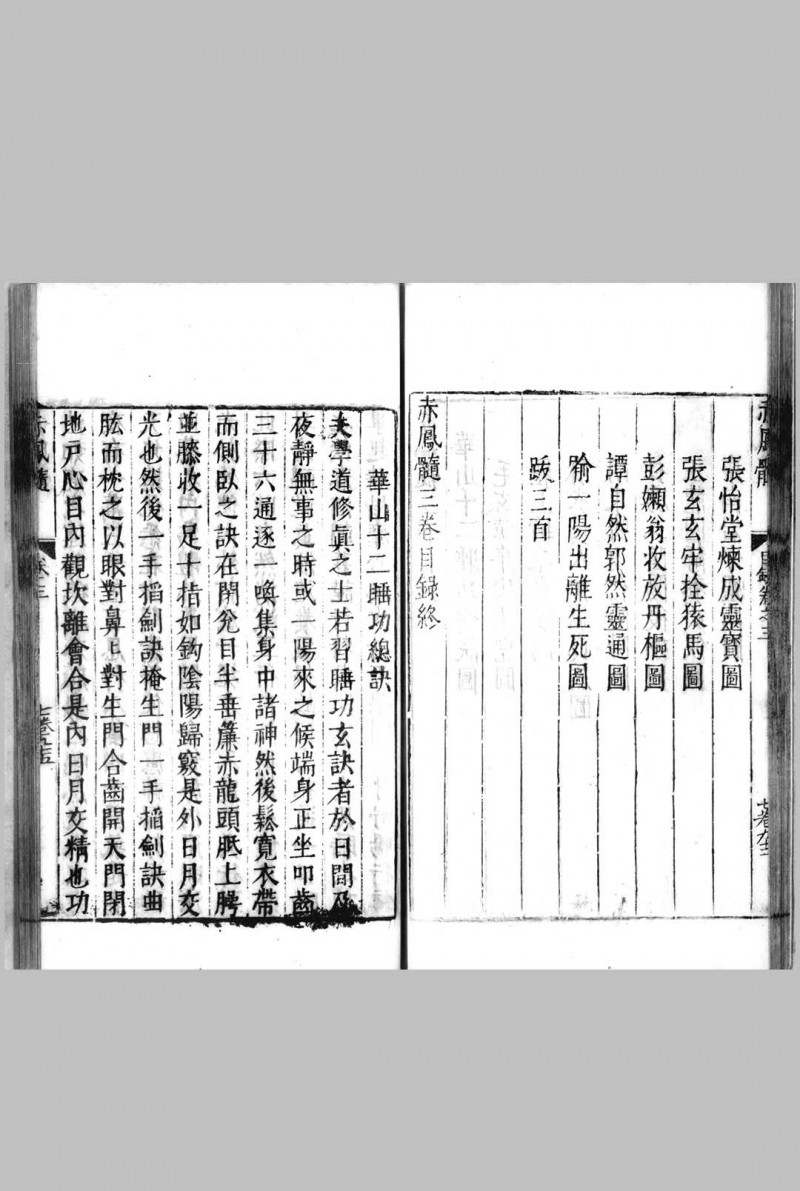 張怡堂煉成靈寶圖
張玄玄牢拴猿馬圖
彭嬾翁收放丹樞圖
譚自然郭然靈通圖
喻一陽出離生死圖
跋三首
赤鳳髓三卷目錄終
華山十二睡功總訣
夫學道修眞之士若習睡功玄訣者於日間及
夜靜無事之時或一陽來之候端身正坐叩齒
三十六通逐一喚集身中諸神然後鬆寬衣帶
而側臥之訣在閉兌目半垂簾赤龍頭胝上腭
並膝收一足十指如鈎陰陽歸竅是外日月交
光也然後一手搯劍訣掩生門一手搯劍訣曲
肱而枕之以眼對鼻鼻對生門合齒開天門閉
地戸心目內觀坎離會合是內日月交精也功
赤鳳髓 卷三